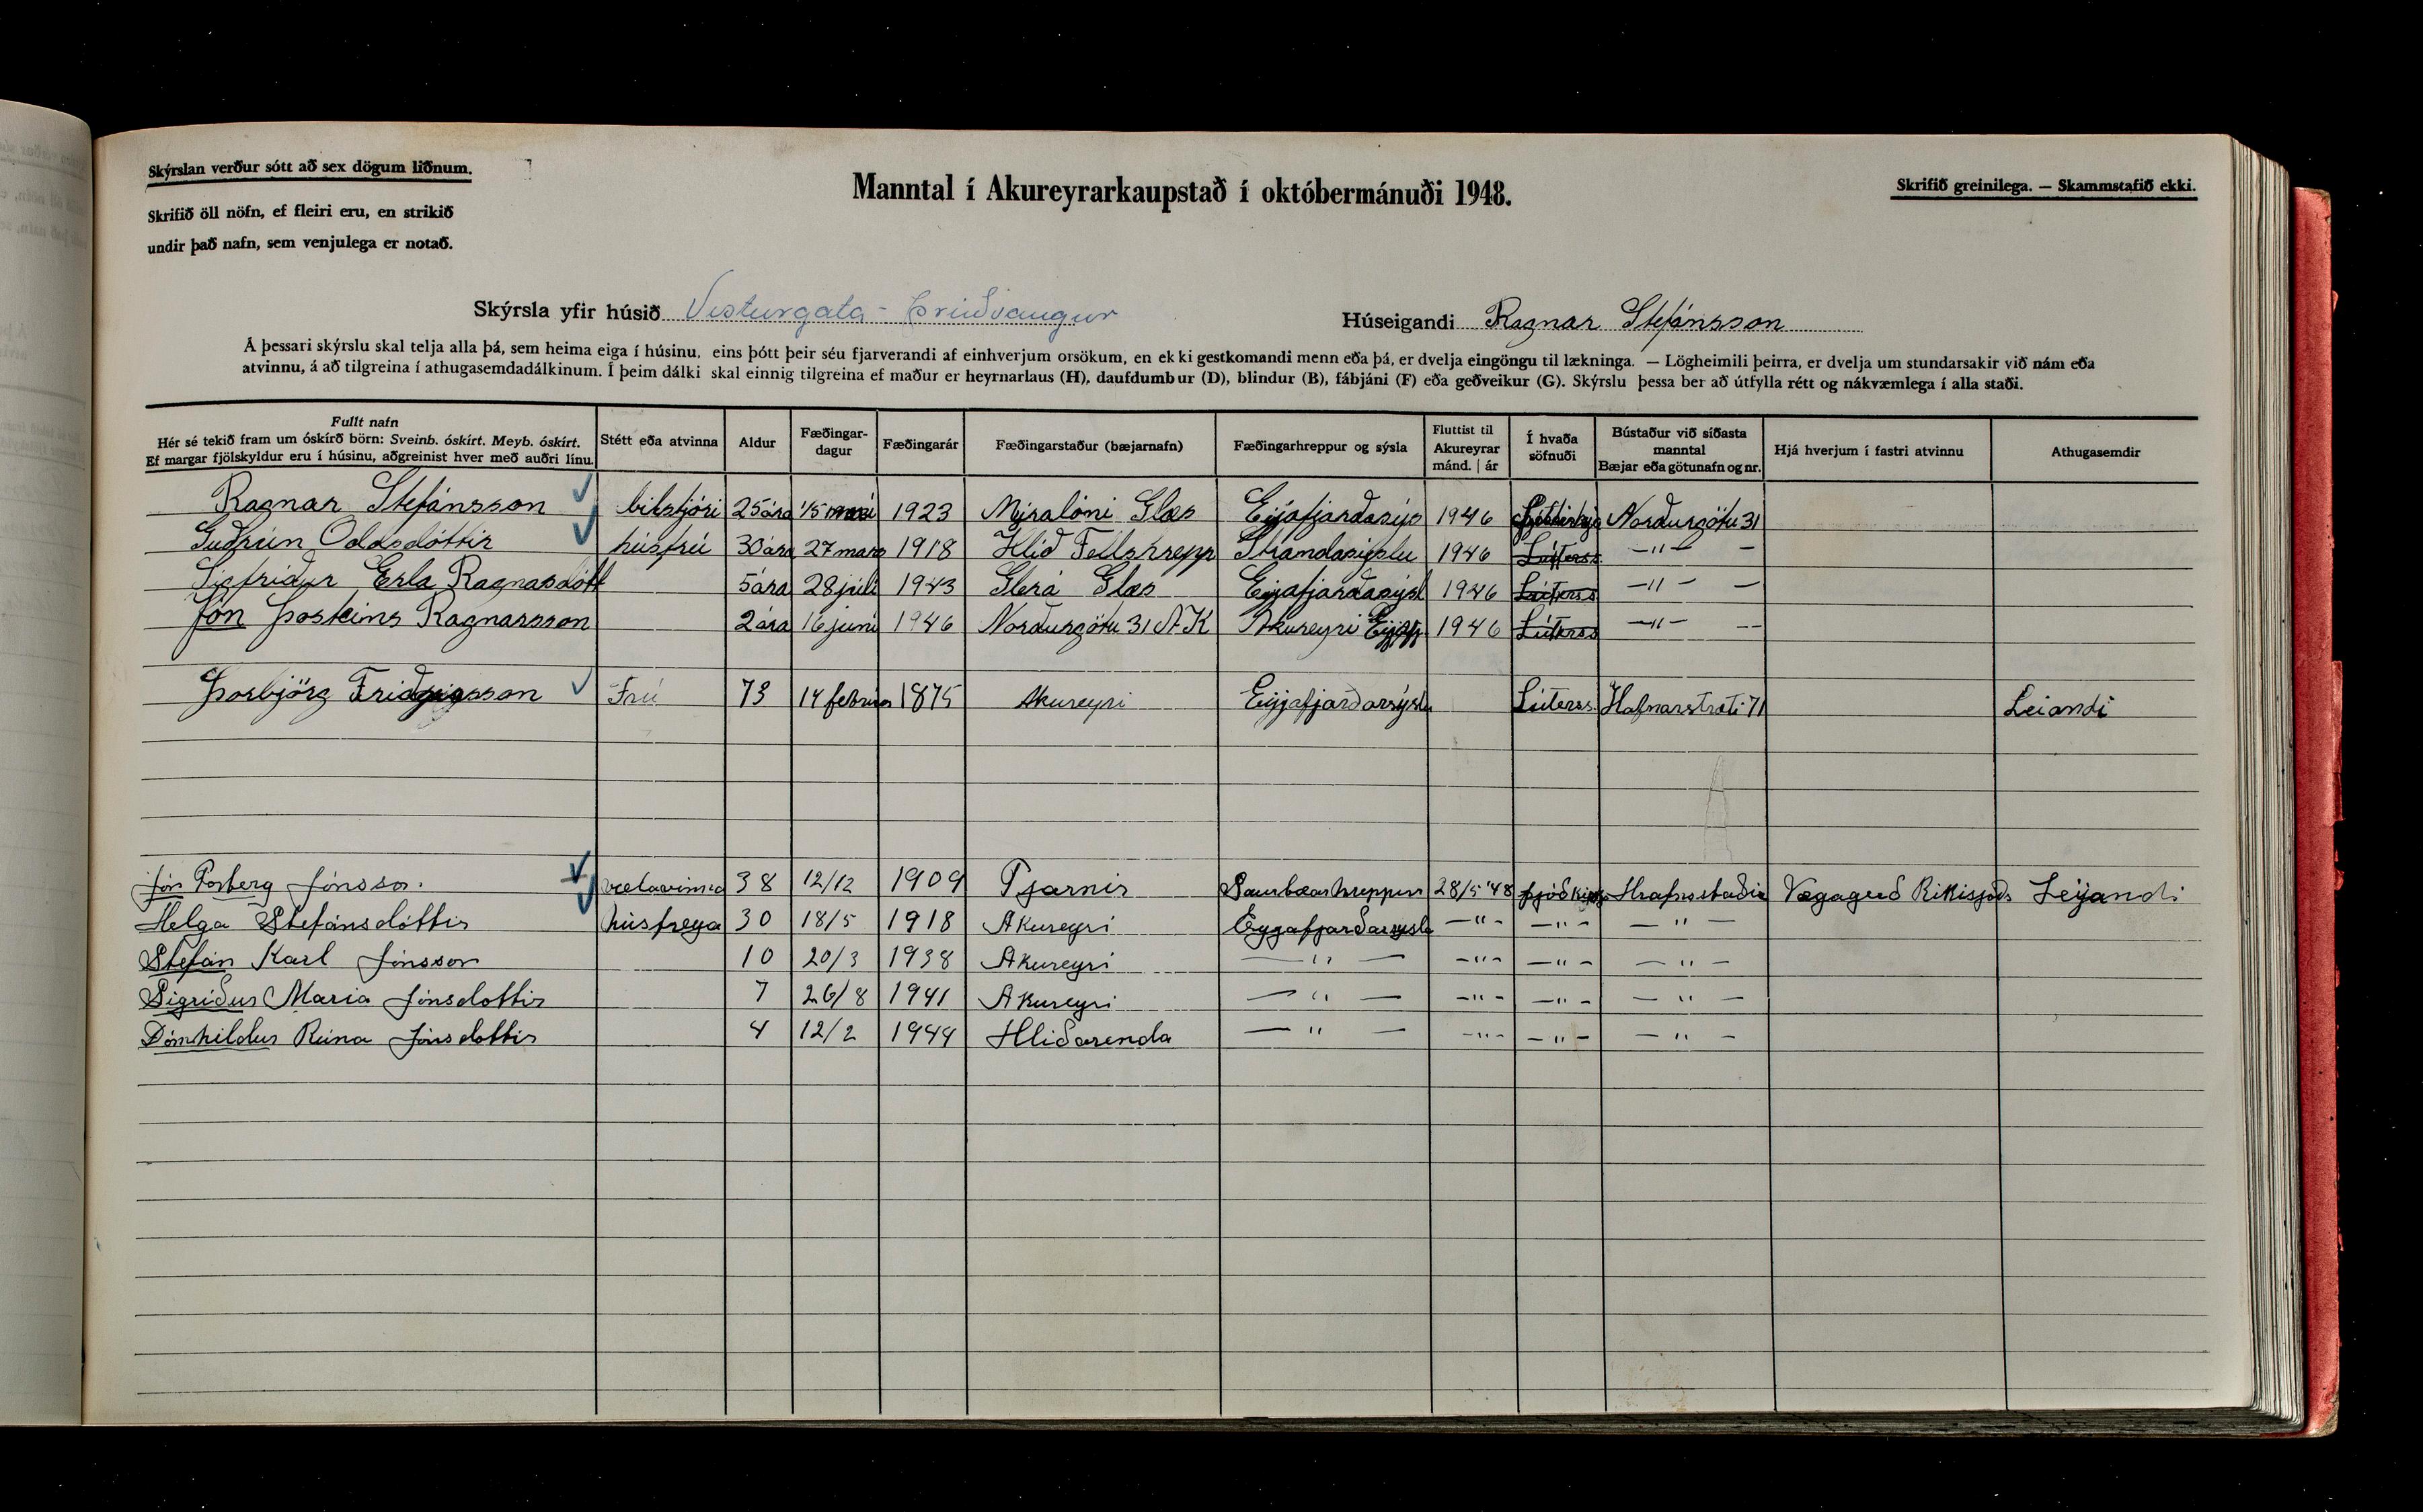 Skýrslan verður sótt að sex dögum liðnum.
Skrifið öll nöfn, ef fleiri eru, en strikið
undir það nafn, sem venjulega er notað.
Manntal í Akureyrarkaupstað í októbermánuði 1948.
Skrifið greinilega. — Skammstafið ekki.
Skýrsla yfir húsið Vesturgata - Þrúðvangur
Húseigandi Ragnar Stefánsson
Á þessari skýrslu skal telja alla þá, sem heima eiga í húsinu, eins þótt þeir séu fjarverandi af einhverjum orsökum, en ekki gestkomandi menn eða þá, er dvelja eingöngu til lækninga. — Lögheimili þeirra, er dvelja um stundarsakir við nám eða
atvinnu, á að tilgreina í athugasemdadálkinum. Í þeim dálki skal einnig tilgreina ef maður er heyrnarlaus (H), daufdumbur (D), blindur (B), fábjáni (F) eða geðveikur (G). Skýrslu þessa ber að útfylla rétt og nákvæmlega í alla staði.
Fullt nafn
Hér sé tekið fram um óskírð börn: Sveinb. óskírt. Meyb. óskírt.
Ef margar fjölskyldur eru í húsinu, aðgreinist hver með auðri línu.
Stétt eða atvinna
Aldur
Fæðingar-
dagur
Fæðingarár
Fæðingarstaður (bæjarnafn)
Fæðingarhreppur og sýsla
Fluttist til
Akureyrar
mánd. | ár
Í hvaða
söfnuði
Bústaður við síðasta
manntal
Bæjar eða götunafn og nr.
Hjá hverjum í fastri atvinnu
Athugasemdir
Ragnar Stefánsson bílstjóri 25 ára 1/5 1923 Mýralóni Glæs Eyjafjarðasýs 1946 Norðurgötu 31
Guðrún Oddsdóttir húsfrú 30 ára 27 mars 1918 Hlíð Fellshrepp Strandasýslu 1946 Lúterss — " — —
Sigfríður Erla Ragnarsdótt 5 ára 28 júlí 1943 Glerá Glæs Eyjafjarðasýsl 1946 Lúterss — " — —
Jón Þosteins Ragnarsson 2 ára 16 júní 1946 Norðurgötu 31 AK Akureyri Eyjafj 1946 Lúterss — " — —
Þorbjörg Friðgeirsson Frú 73 14 febrúa 1875 Akureyri Eyjafjarðarsýslu Lúterss. Hafnarstræti 71 Leiandi
Jón Jónsson. 38 12/12 1909 Tjarnir Saurbæarhreppur 28/5 '48 Hrafnsstaðir Vegagerð Rikissjóðs Leijandi
Helga Stefánsdóttir húsfreya 30 18/5 1918 Akureyri Eyjafjarðarsysla — " — — " — — " —
Stefán Karl Jónsson 10 20/3 1938 Akureyri — " — — " — — " — — " —
Sigríður Maria Jónsdottir 7 26/8 1941 Akureyri — " — — " — — " — — " —
Dómhildur Rúna Jónsdottir 4 12/2 1944 Hliðarenda — " — — " — — " — — " —